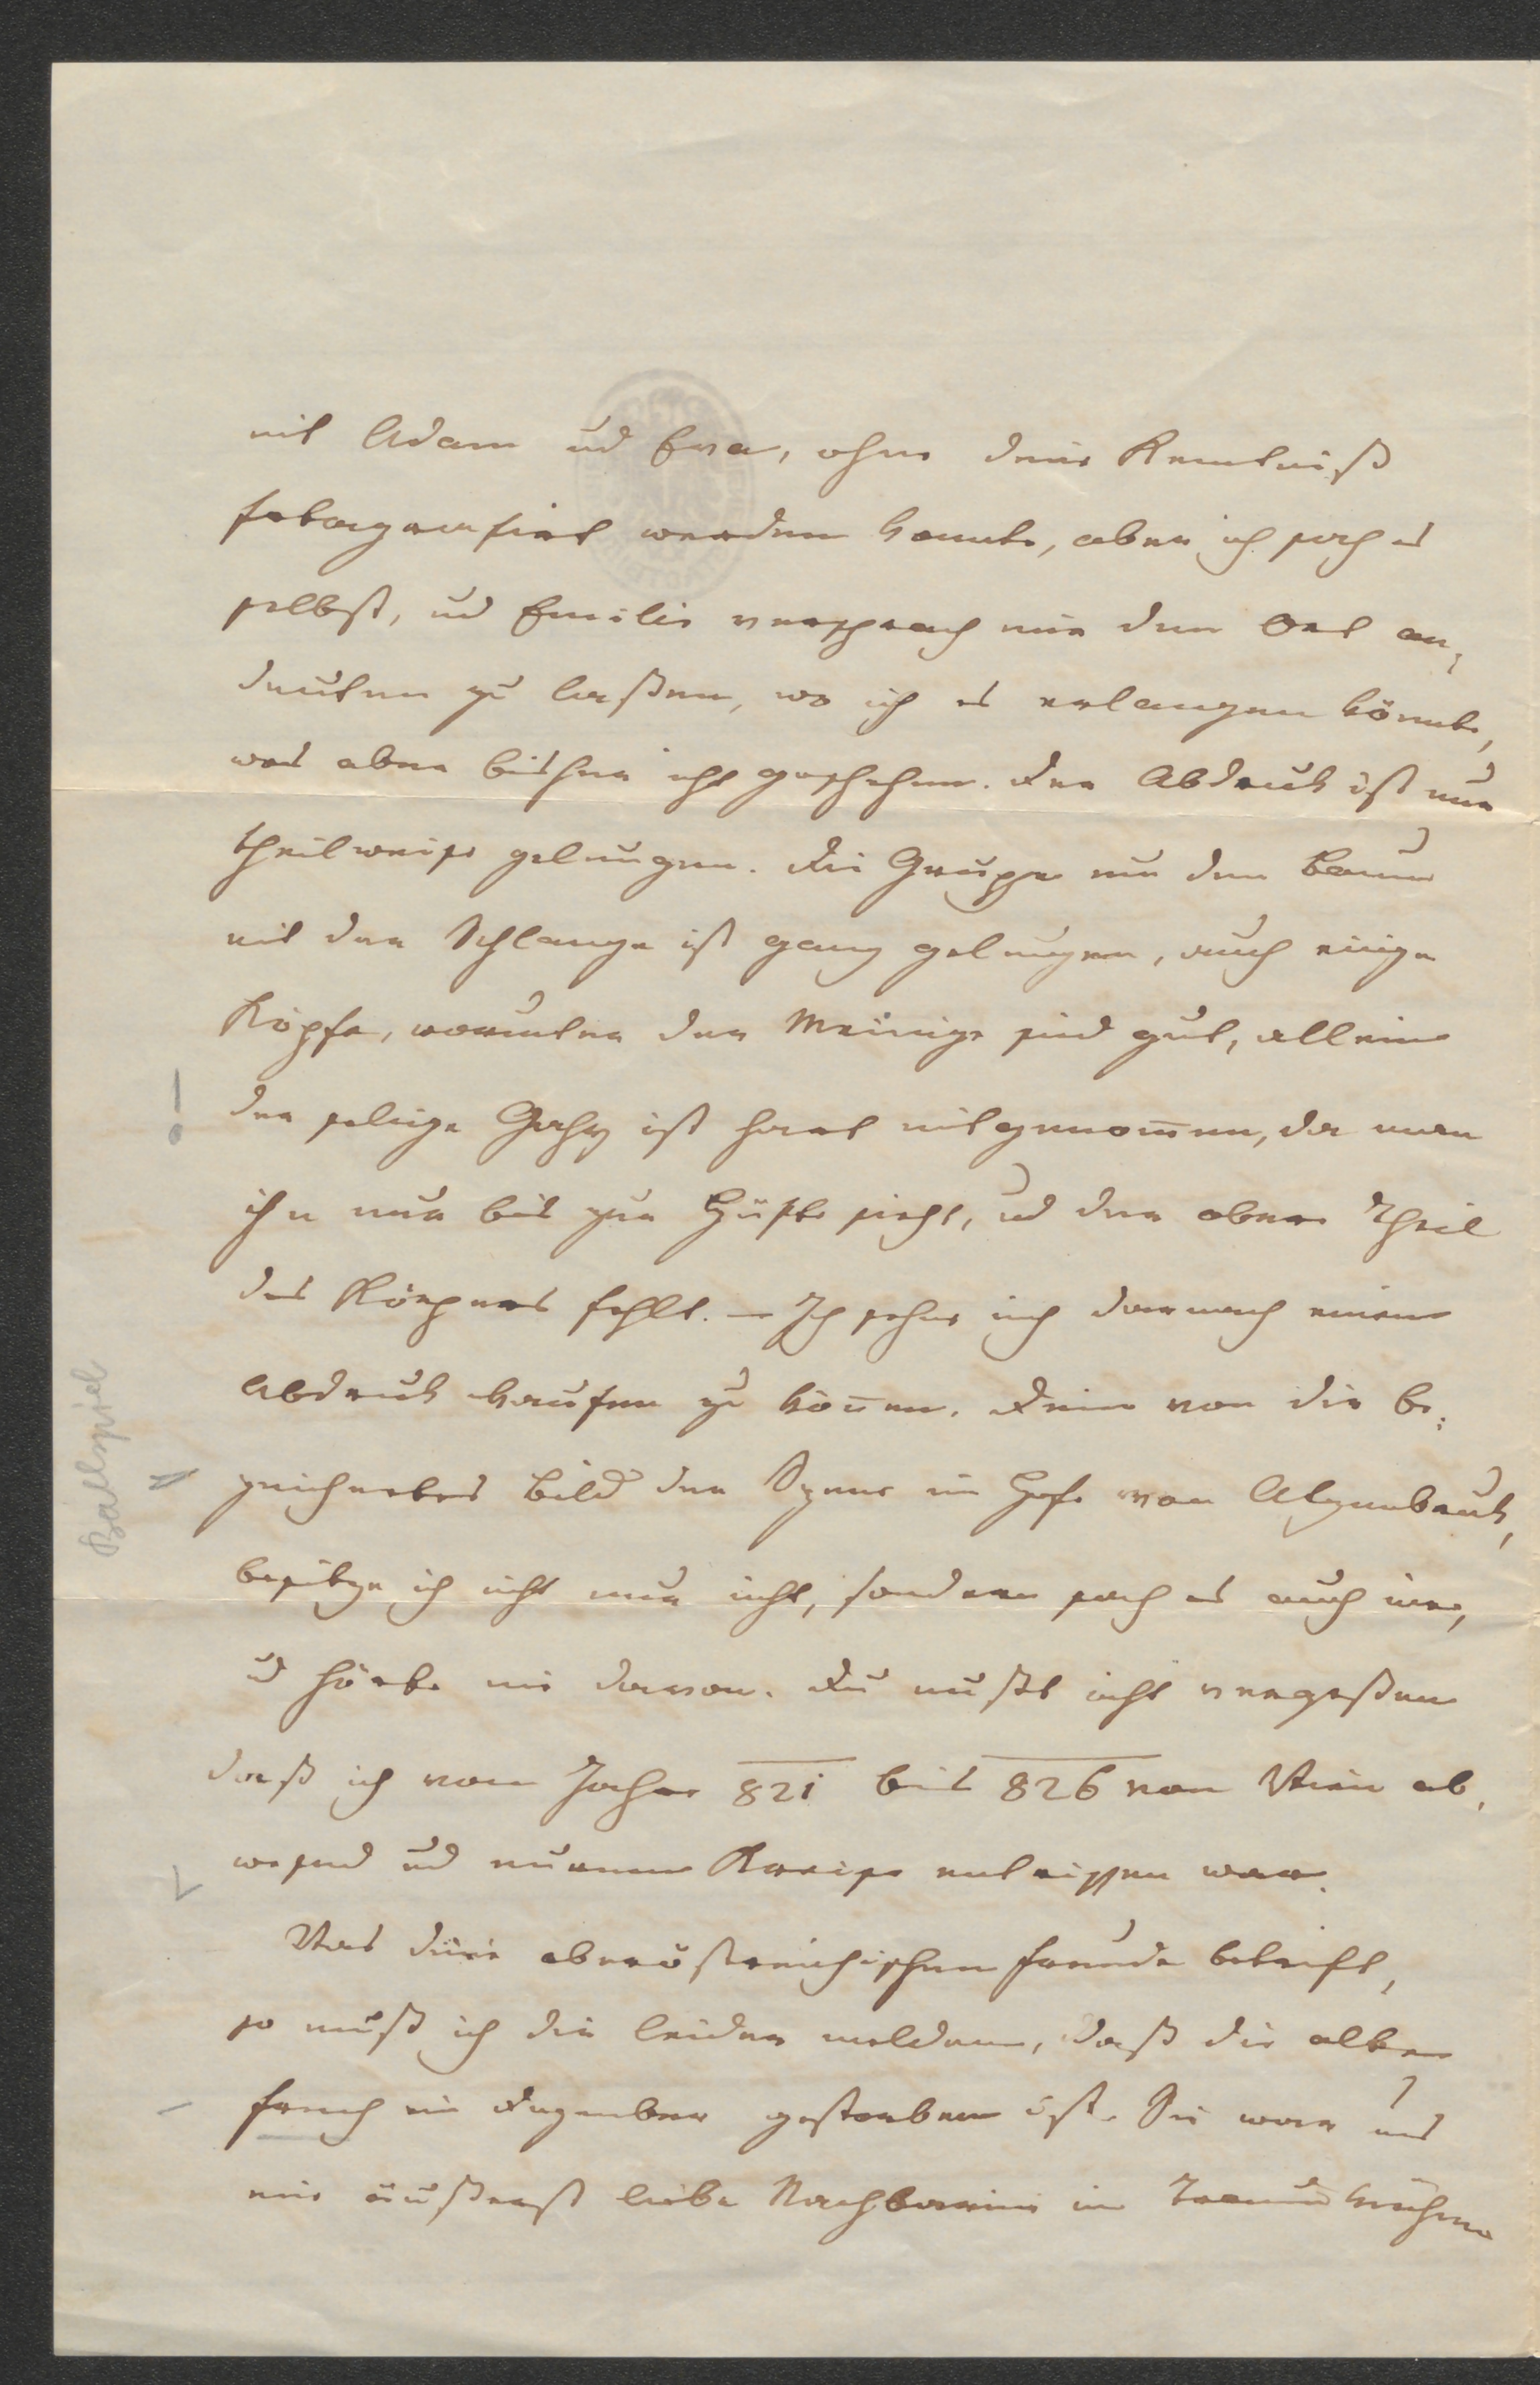 mit Adam ud Eva, ohne deine Kenntniß
fotografirt werden konnte, aber ich sah es
selbst, ud Emilie versprach mir den Ort an¬
deuten zu laßen, wo ich es erlangen könnte,
was aber bisher nicht geschehen. Der Abdruck ist nur
theilweise gelungen. Die Gruppe um den Baum
mit der Schlange ist ganz gelungen, auch einige
Köpfe, worunter der Meinige sind gut, allein
der selige Gahy ist hart mitgenom̅en, da man
ihn nur bis zur Hüfte sieht, ud der obere Theil
des Körpers fehlt. – Ich sehne mich darnach einen
Abdruck kaufen zu kön̅en. Dein von dir be:
zeichnetes Bild der Szene im Hofe von Atzenbruk,
besitze ich nicht nur nicht, sondern sah es auch nie,
ud hörte nie davon. Du mußt nicht vergeßen
daß ich vom Jahre 821 bis 826 von Wien ab¬
wesend ud eurem Kreise entrissen war.
Was deine oberöstreichischen Freunde betrift,
so muß ich dir leider melden, daß die alte
im Dezember gestorben ist. Sie war uns
eine äußerst liebe Nachbarin in Traunkirchen
Ballspiel